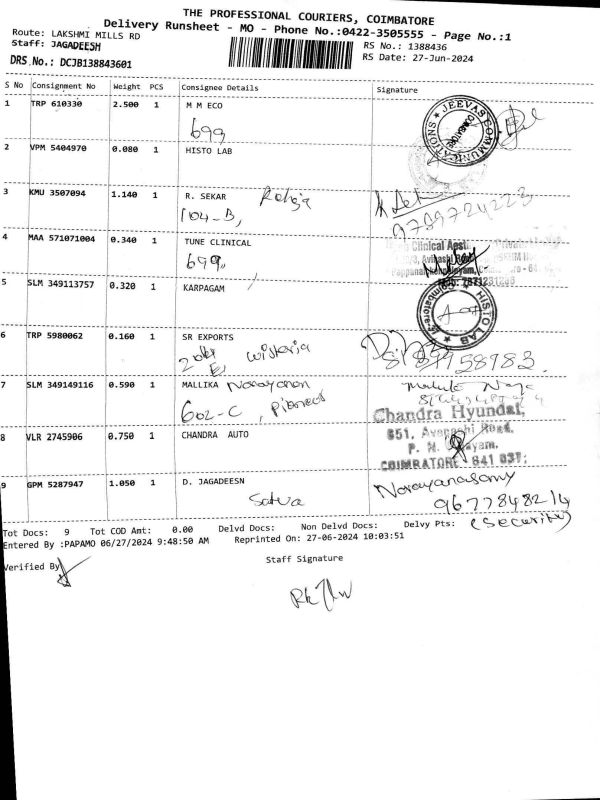 THE PROFESSIONAL COURIERS, COIMBATORE
Delivery Runsheet - MO - Phone No.:0422-3505555 - Page No.:1
Route: LAKSHMI MILLS RD
Staff: JAGADEESH
RS No.: 1388436
RS Date: 27-Jun-2024
DRS No.: DCJB138843601
S No Consignment No Weight PCS Consignee Details Signature
1 TRP 610330 2.500 1 M M ECO
699
JEEVAS COMMUNICATIONS
COIMBATORE
2 VPM 5404970 0.080 1 HISTO LAB
3 KMU 3507094 1.140 1 R. SEKAR
104-B,
9789724223
4 MAA 571071004 0.340 1 TUNE CLINICAL
699
Clinical Aest
5 SLM 349113757 0.320 1 KARPAGAM
HISTO LAB
Coimbatore
6 TRP 5980062 0.160 1 SR EXPORTS
E, wisteria
7 SLM 349149116 0.590 1 MALLIKA Narayanan
602-C, Pioneer
Chandra Hyundai,
851, Avanashi Road,
COIMBATORE 641 037;
8 VLR 2745906 0.750 1 CHANDRA AUTO
9 GPM 5287947 1.050 1 D. JAGADEESN
Satva
Narayanasamy
9677848214
(Security)
Tot Docs: 9 Tot COD Amt: 0.00 Delvd Docs: Non Delvd Docs: Delvy Pts:
Entered By :PAPAMO 06/27/2024 9:48:50 AM Reprinted On: 27-06-2024 10:03:51
Verified By
Staff Signature